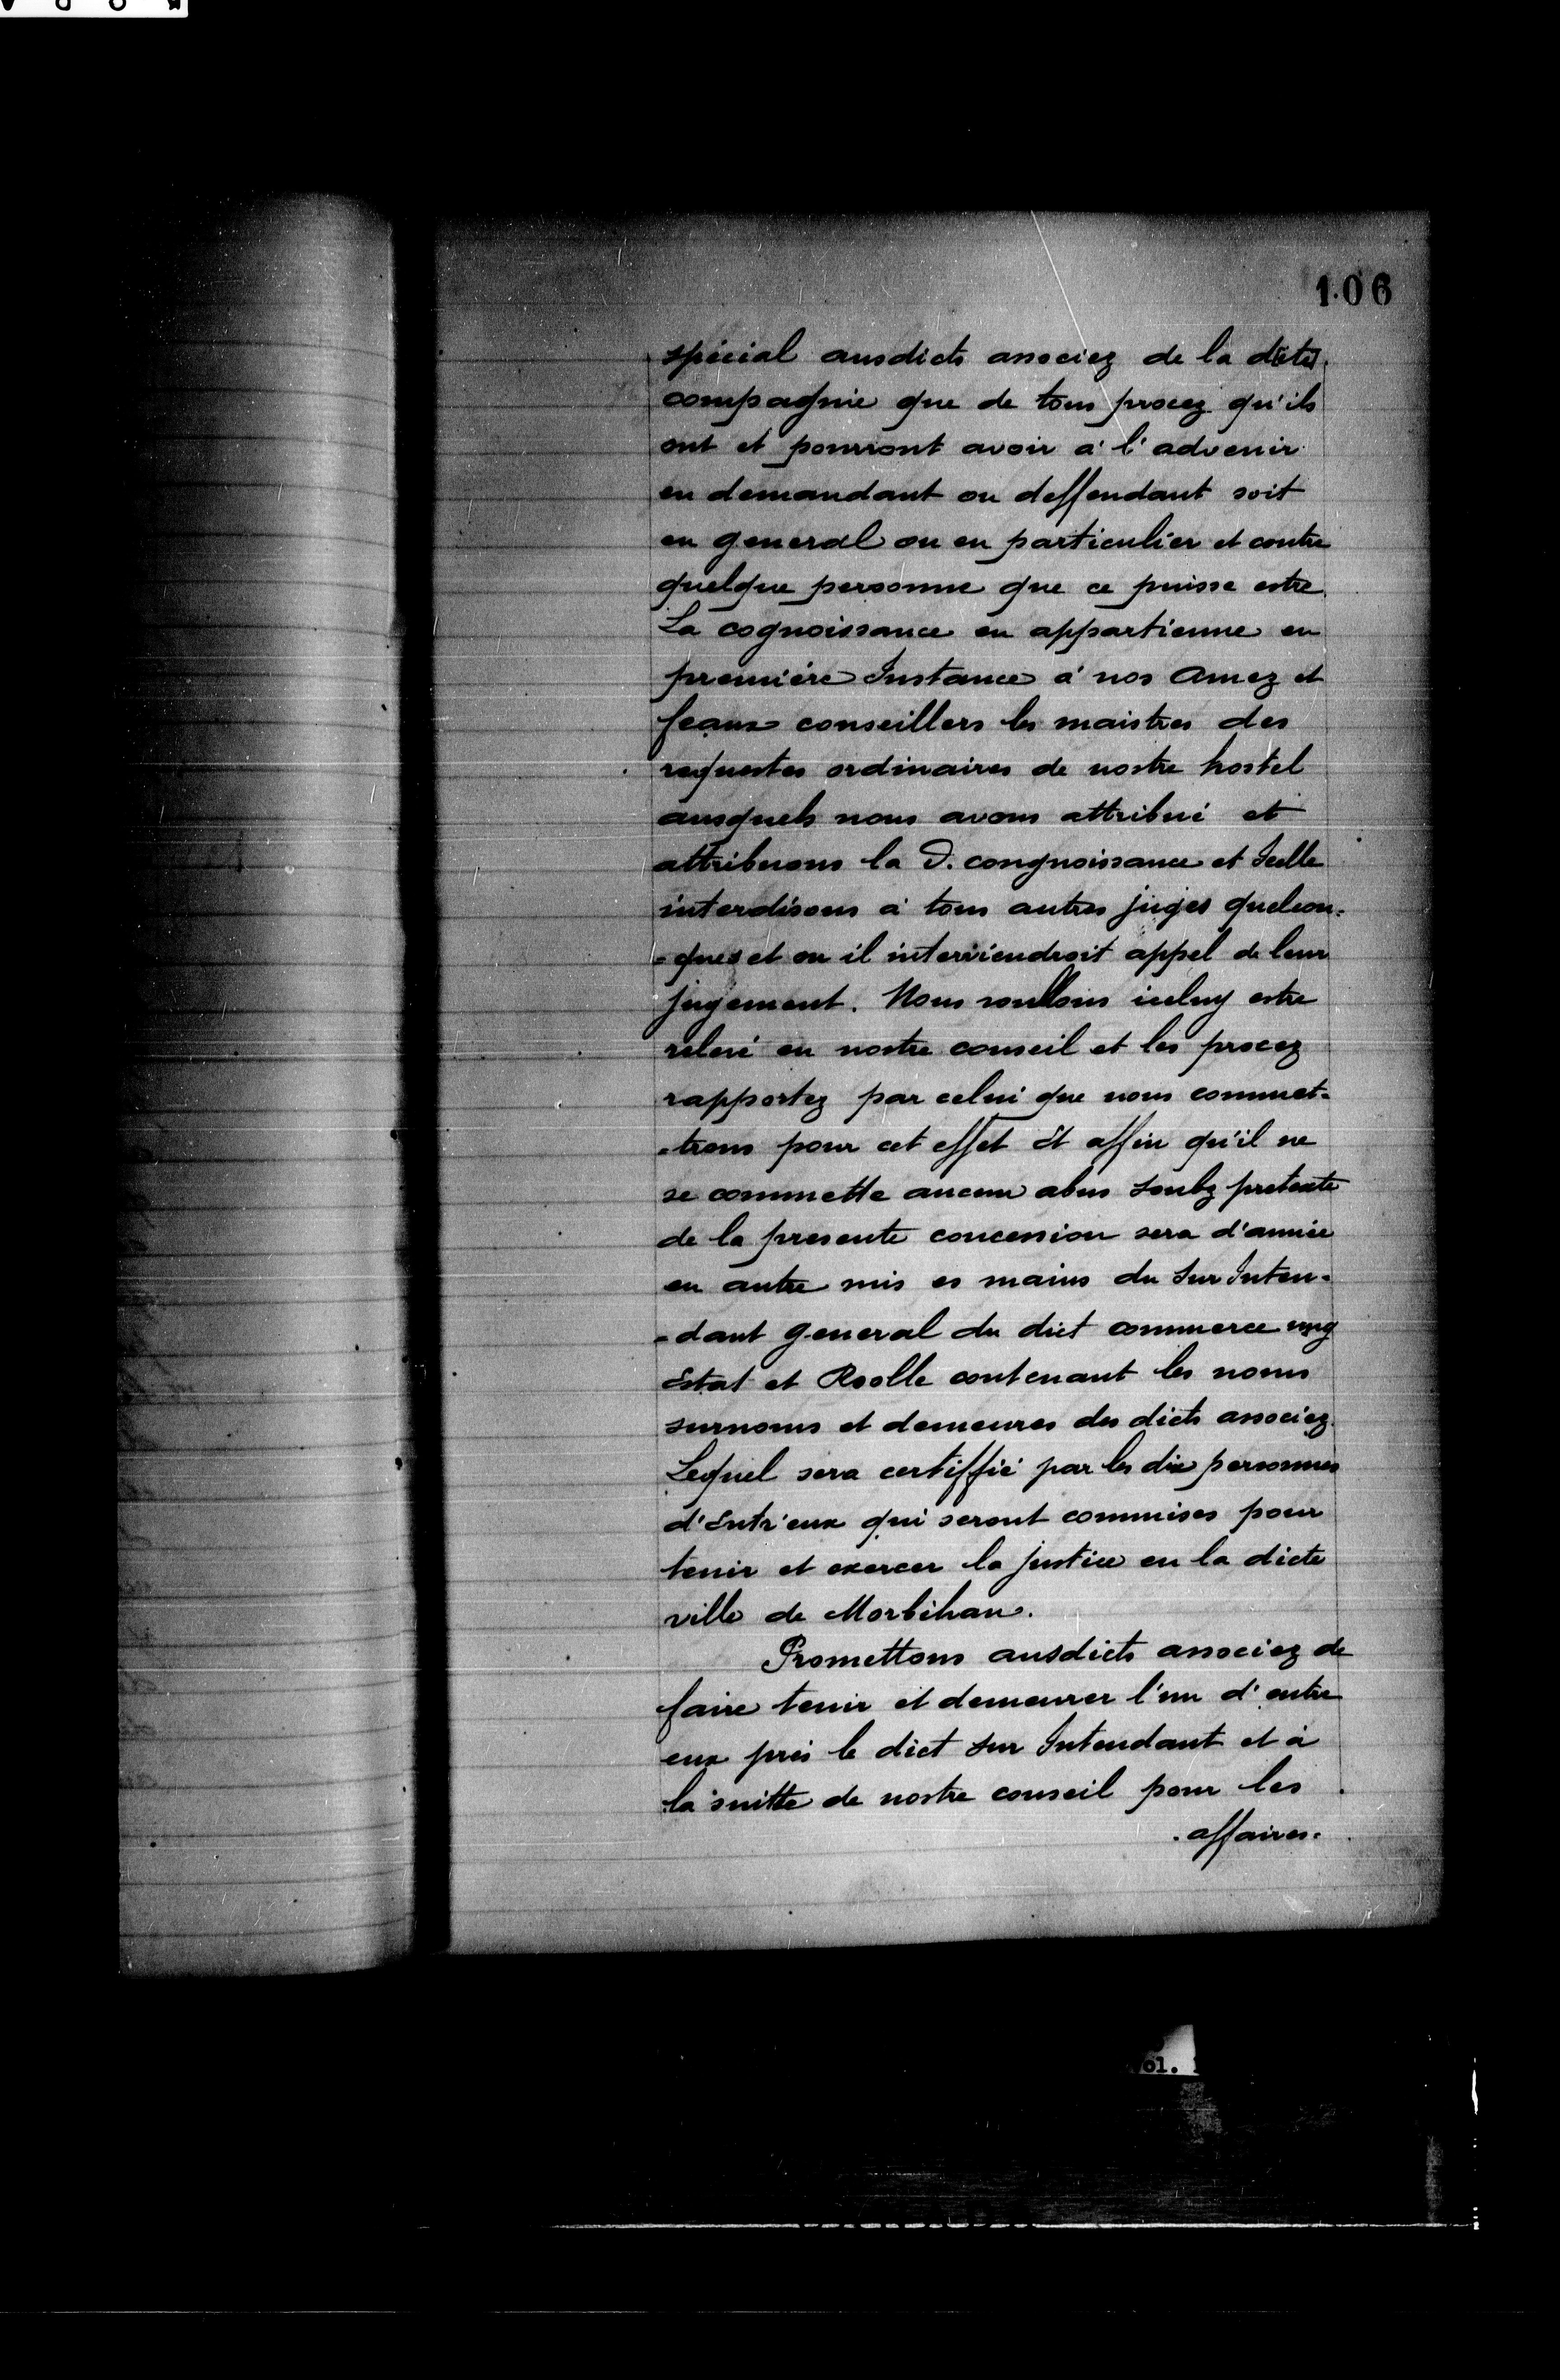 106
spécial ausdicts associez de la dicte
compagnie que de tous procez qu'ils
ont et pourront avoir à l'advenir
en demandant ou deffendant soit
en general ou en particulier et contre
quelque personne que ce puisse estre
La cognoissance en appartienne en
première Instance à nos Amez et
feaux conseillers les maistres des
requestes ordinaires de nostre hostel
ausquels nous avons attribué et
attribuons la D. congnoissance et Icelle
interdisons à tous autres juges quelcon-
-ques et ou il interviendroit appel de leur
jugement. Nous voullons iceluy estre
relevé en nostre conseil et les procez
rapportez par celui que nous commet-
-trons pour cet effet Et affin qu'il ne
se commette aucun abus soubz pretexte
de la presente concession sera d'année
en autre mis es mains du Sur Inten-
-dant general du dict commerce ung
Estat et Roolle contenant les noms
surnoms et demeures des dicts associez
Lequel sera certiffié par les dix personnes
d'Entr'eux qui seront commises pour
tenir et exercer la justice en la dicte
ville de Morbihan.
Promettons ausdicts associez de
faire tenir et demeurer l'un d'entre
eux près le dict Sur Intendant et à
la suitte de nostre conseil pour les
affaires.
ol.